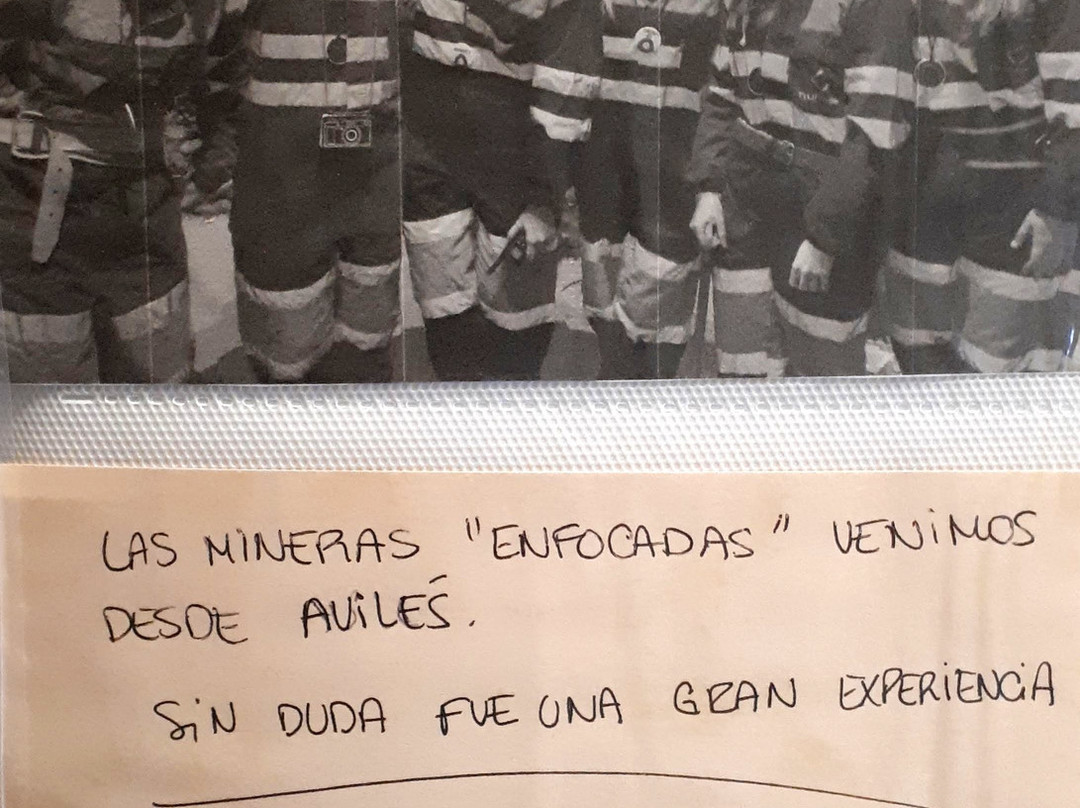 LAS MINERAS "ENFOCADAS" VENIMOS
DESDE AVILÉS.
SIN DUDA FUE UNA GRAN EXPERIENCIA